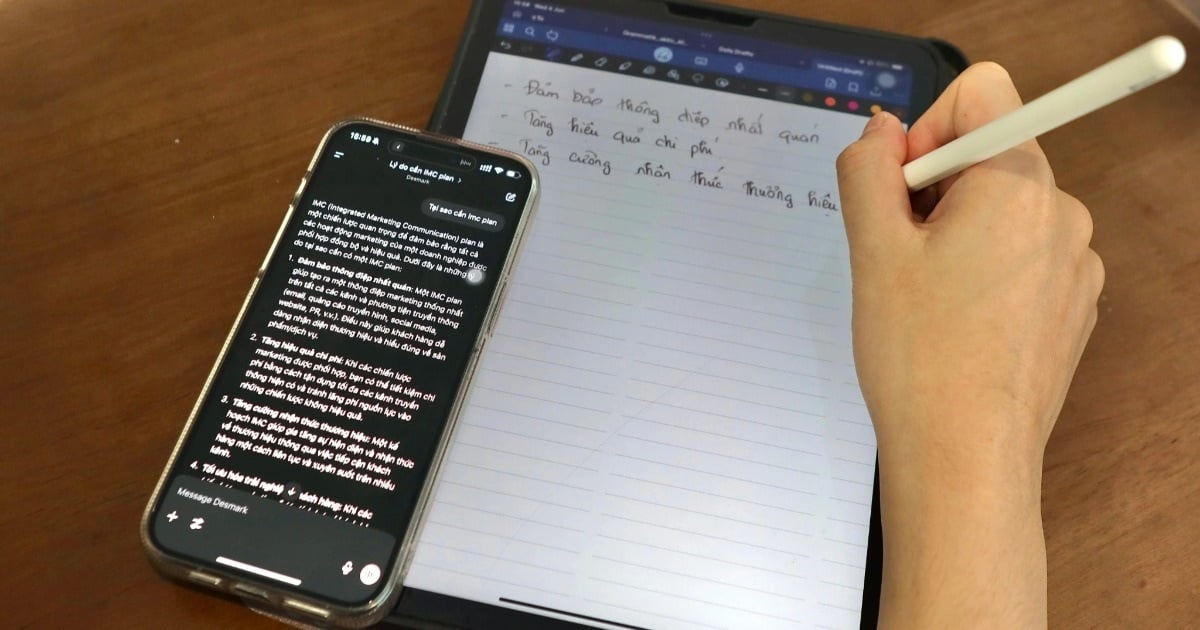 16:59
Lý do cần IMC plan >
Desmark
Tại sao cần imc plan
IMC (Integrated Marketing Communication) plan là
một chiến lược quan trọng để đảm bảo rằng tất cả
các hoạt động marketing của một doanh nghiệp được
phối hợp đồng bộ và hiệu quả. Dưới đây là những lý
do tại sao cần có một IMC plan:
1. Đảm bảo thông điệp nhất quán: Một IMC plan
giúp tạo ra một thông điệp marketing thống nhất
trên tất cả các kênh và phương tiện truyền thông
(email, quảng cáo truyền hình, social media,
website, PR, v.v.). Điều này giúp khách hàng dễ
dàng nhận diện thương hiệu và hiểu đúng về sản
phẩm/dịch vụ.
2. Tăng hiệu quả chi phí: Khi các chiến lược
marketing được phối hợp, bạn có thể tiết kiệm chi
phí bằng cách tận dụng tối đa các kênh truyền
thông hiện có và tránh lãng phí nguồn lực vào
những chiến lược không hiệu quả.
3. Tăng cường nhận thức thương hiệu: Một kế
hoạch IMC giúp gia tăng sự hiện diện và nhận thức
về thương hiệu thông qua việc tiếp cận khách
hàng một cách liên tục và xuyên suốt trên nhiều
kênh.
4. Tối ưu hóa trải hàng: Khi các
Message Desmark
Wed 4 Jun
Untitled (Draft)
- Đảm bảo thông điệp nhất quán
- Tăng hiệu quả chi phí
- Tăng cường nhận thức thương hiệu